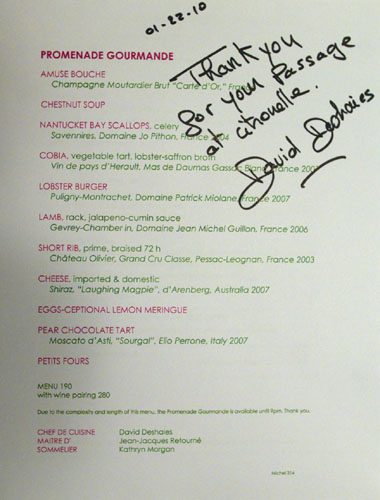 01-22-10
Thank you
for your Passage
at citronelle.
David Deshaies
PROMENADE GOURMANDE
AMUSE BOUCHE
Champagne Moutardier Brut "Carte d'Or," Fran
CHESTNUT SOUP
NANTUCKET BAY SCALLOPS, celery
Savennires, Domaine Jo Pithon, France 2004
COBIA, vegetable tart, lobster-saffron broth
Vin de pays d'Herault, Mas de Daumas Gassac Blanc, France 2007
LOBSTER BURGER
Puligny-Montrachet, Domaine Patrick Miolane, France 2007
LAMB, rack, jalapeno-cumin sauce
Gevrey-Chamber in, Domaine Jean Michel Guillon, France 2006
SHORT RIB, prime, braised 72 h
Château Olivier, Grand Cru Classe, Pessac-Leognan, France 2003
CHEESE, imported & domestic
Shiraz, "Laughing Magpie", d'Arenberg, Australia 2007
EGGS-CEPTIONAL LEMON MERINGUE
PEAR CHOCOLATE TART
Moscato d'Asti, "Sourgal", Elio Perrone, Italy 2007
PETITS FOURS
MENU 190
with wine pairing 280
Due to the complexity and length of this menu, the Promenade Gourmande is available until 9pm. Thank you.
CHEF DE CUISINE David Deshaies
MAITRE D' Jean-Jacques Retourné
SOMMELIER Kathryn Morgan